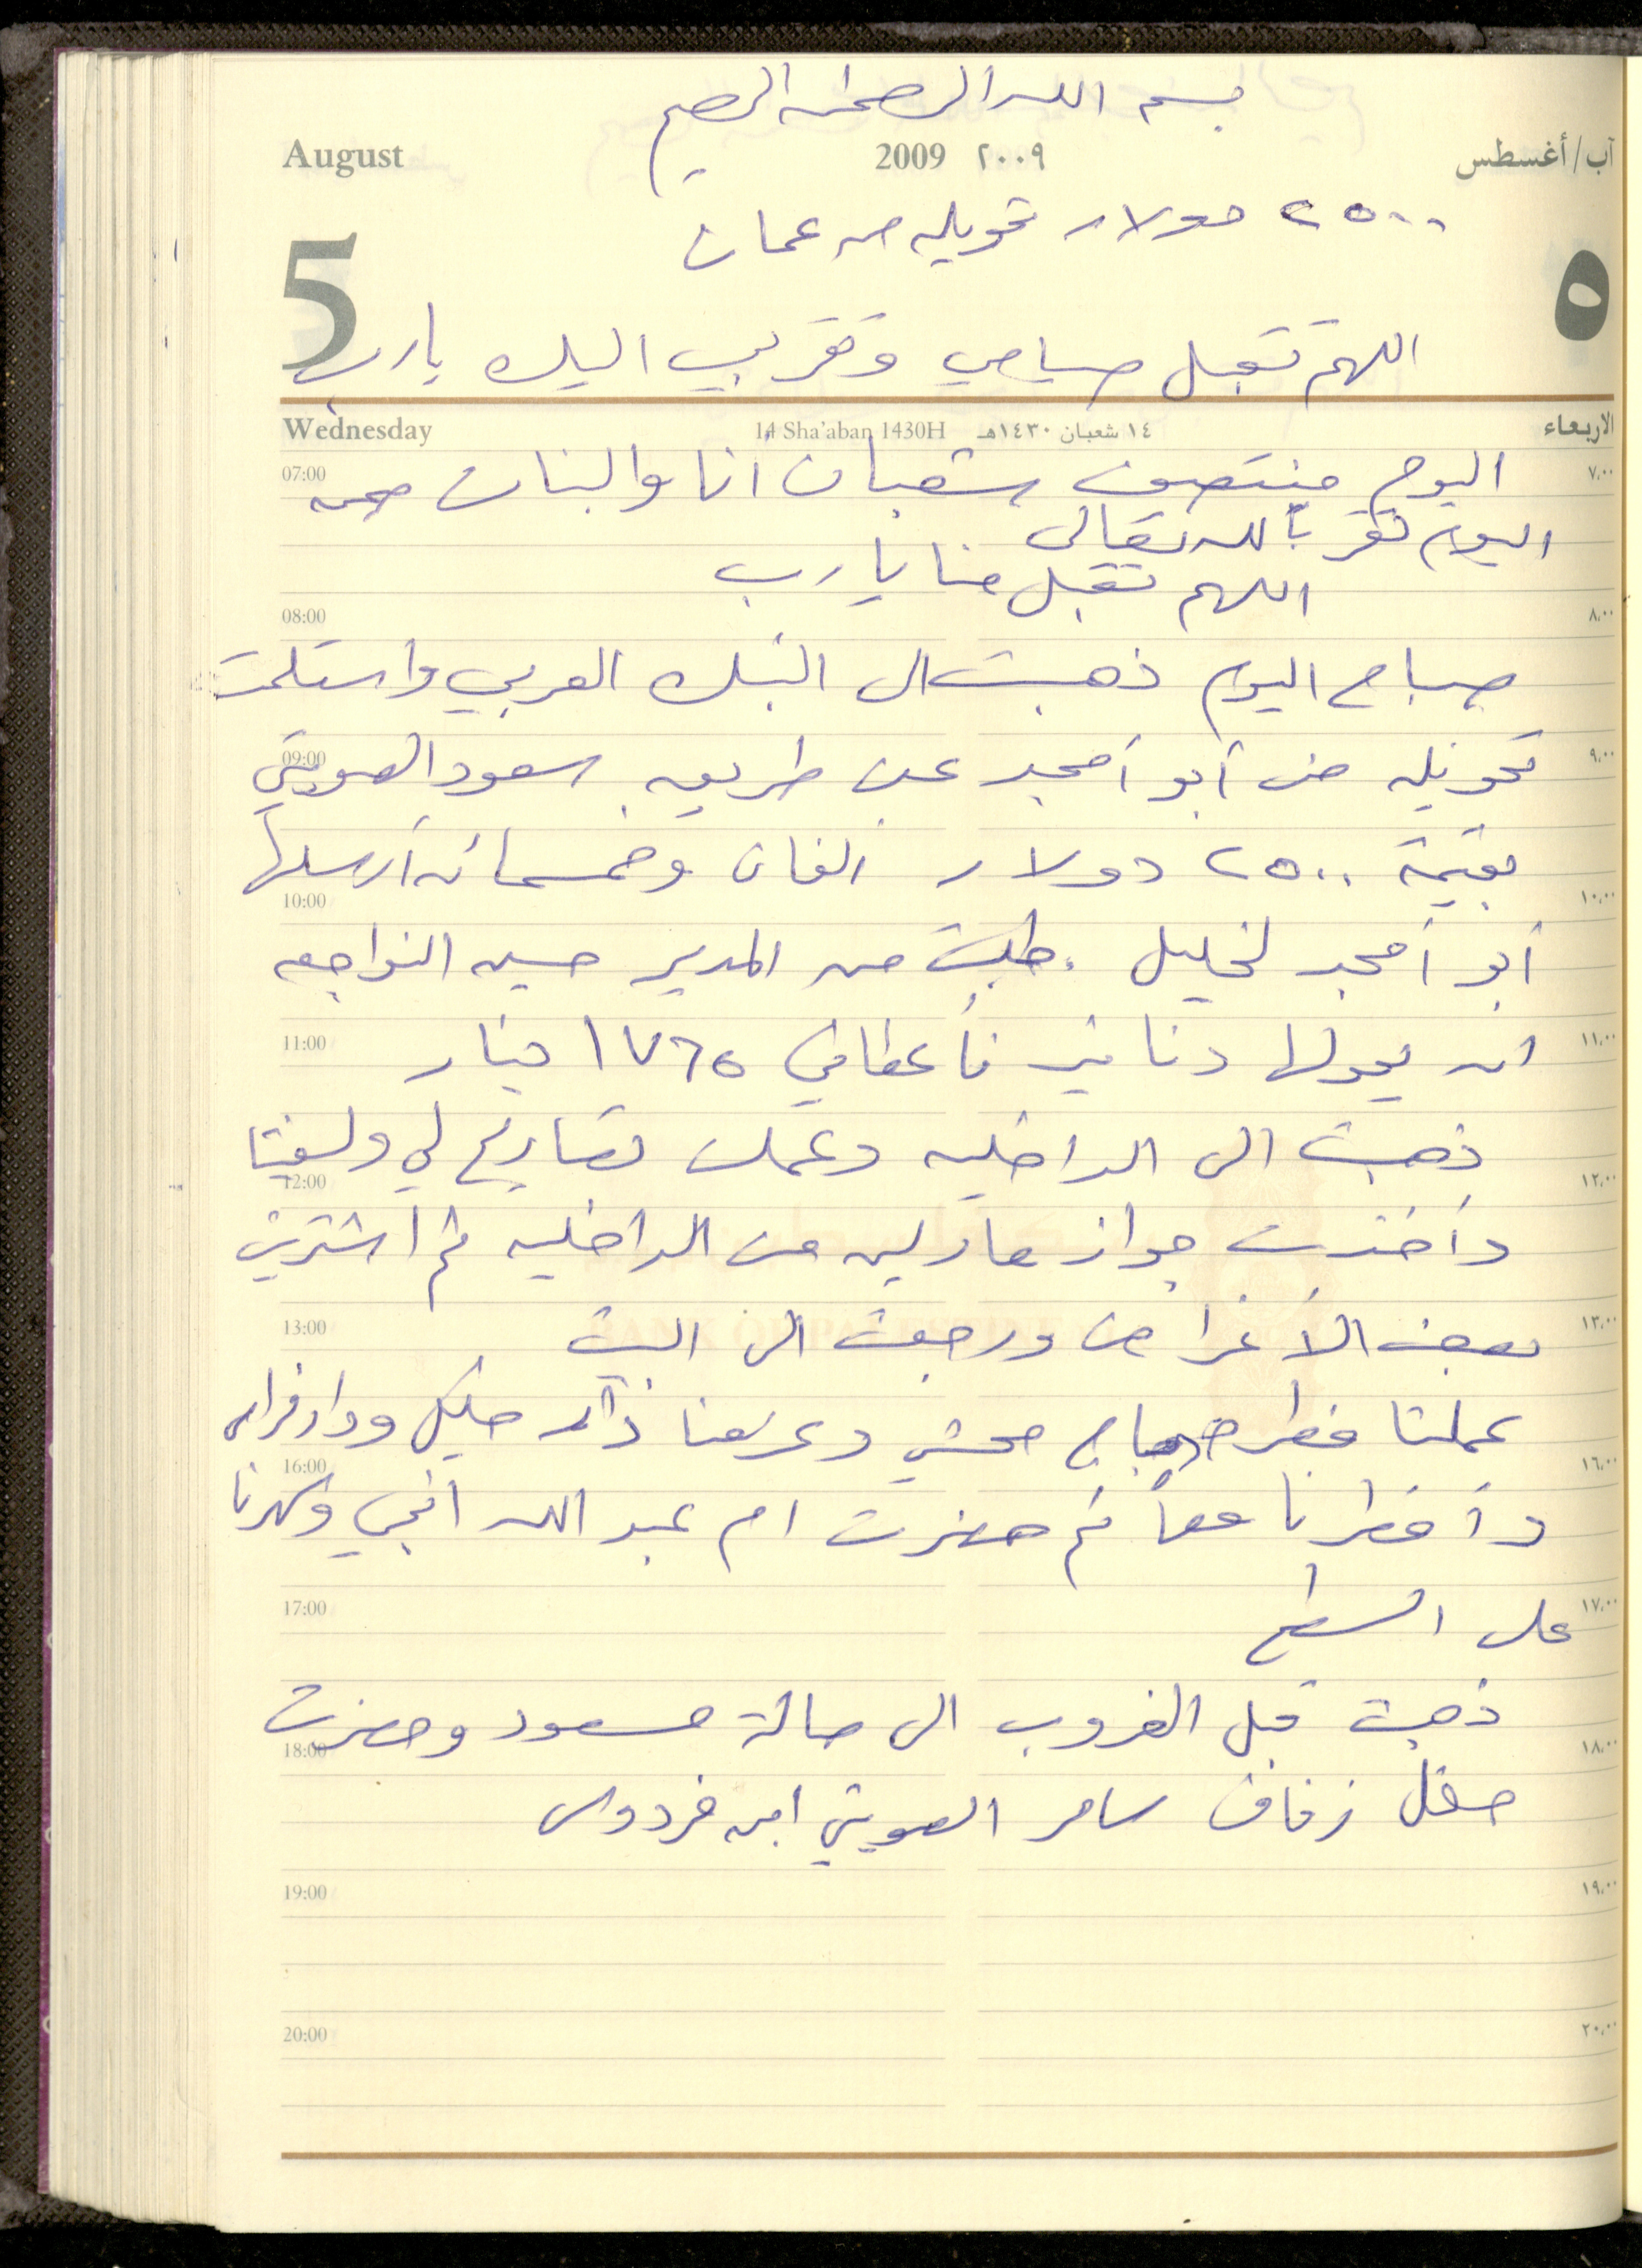 بسم الله الرحمن الرحيم
August 2009 ٢٠٠٩ آب/أغسطس
٢٥٠٠ دولار تحويله من عمان
5 ٥
اللهم تقبل صيامي وتقربي اليك يارب
Wednesday 14 Sha'aban 1430H ١٤ شعبان ١٤٣٠هـ الاربعاء
07:00 اليوم منتصف شعبان أنا والبنات ٧،٠٠
اليوم تقربا لله تعالى
اللهم تقبل منا يارب
08:00 ٨،٠٠
صباح اليوم ذهبت الى البنك العربي واستلمت
09:00 تحويله من أبو أمجد عن طريق سعود العويتي ٩،٠٠
بقيمة ٢٥٠٠ دولار الفان وخمسمائه أرسلها
10:00 ١٠،٠٠
أبو أمجد لخليل . طلبت من المدير حسين النواجعه
11:00 ان يحولها دنانير فأعطاني ١٧٦٥ دينار ١١،٠٠
ذهبت الى الداخليه وعملت تصاريح لي ولـ
12:00 ١٢،٠٠
وأخذت جواز مارلين من الداخليه ثم اشتريت
13:00 بعض الأغراض ورجعت الى البيت ١٣،٠٠
BANK OF PALESTINE
عملنا فطر دجاج محشي وعزمنا دار خليل ودار فراس
16:00 ١٦،٠٠
وأفطرنا معاً ثم حضرت ام عبد الله اختي وسهرنا
17:00 على السطح ١٧،٠٠
ذهبت قبل الغروب الى صالة مسعود وحضرت
18:00 ١٨،٠٠
حفل زفاف سامر العويتي ابن فردوس
19:00 ١٩،٠٠
20:00 ٢٠،٠٠